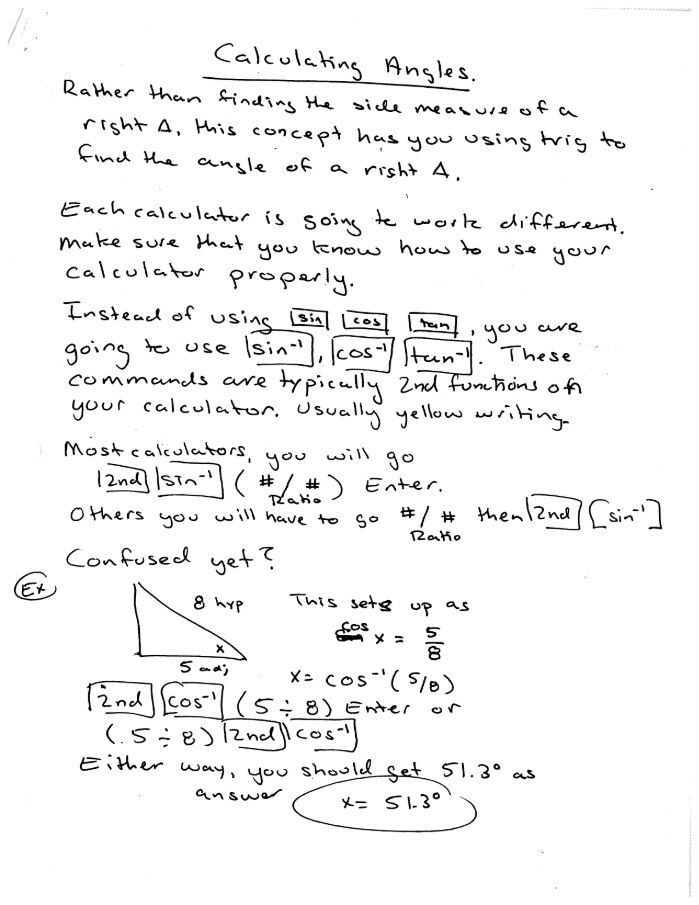 Calculating Angles.
Rather than finding the side measure of a
right Δ, this concept has you using trig to
find the angle of a right Δ.
Each calculator is going to work different.
Make sure that you know how to use your
calculator properly.
Instead of using sin cos tan, you are
going to use sin⁻¹, cos⁻¹ tan⁻¹. These
commands are typically 2nd functions on
your calculator. Usually yellow writing.
Most calculators, you will go
2nd sin⁻¹ ( # / # ) Enter.
Ratio
Others you will have to go # / # then 2nd [sin⁻¹]
Ratio
Confused yet?
Ex
8 hyp This sets up as
cos x = 5/8
x
5 adj x = cos⁻¹(5/8)
2nd cos⁻¹ (5 ÷ 8) Enter or
(5 ÷ 8) 2nd cos⁻¹
Either way, you should get 51.3° as
answer x = 51.3°